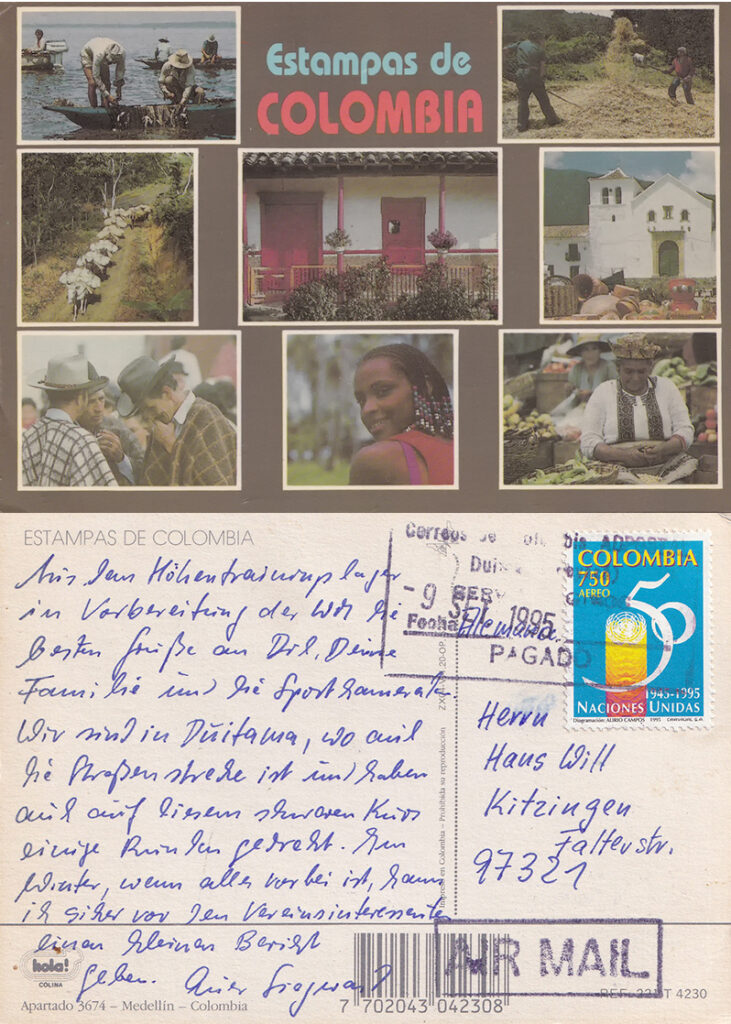 Estampas de
COLOMBIA
ESTAMPAS DE COLOMBIA
Aus dem Höhentrainingslager
in Vorbereitung der WM die
besten Grüße an Dich, Deine
Familie und die Sportkameraden.
Wir sind in Duitama, wo auch
die Straßenstrecke ist und haben
auch auf diesem schweren Kurs
einige Runden gedreht. Im
Winter, wenn alles vorbei ist, kann
ich sicher vor den Vereinsinteressenten
einen kleinen Bericht
geben. Euer Siegward
hola!
COLINA
Apartado 3674 – Medellín – Colombia
7 702043 042308
Impreso en Colombia – Prohibida su reproducción
Correos de
- 9 SET. 1995
Fecha
PAGADO
Alemania
COLOMBIA
750
AEREO
50
1945-1995
NACIONES UNIDAS
Diagramación: ALIRIO CAMPOS 1995
Herrn
Hans Will
Kitzingen
Falterstr.
97321
AIR MAIL
4230